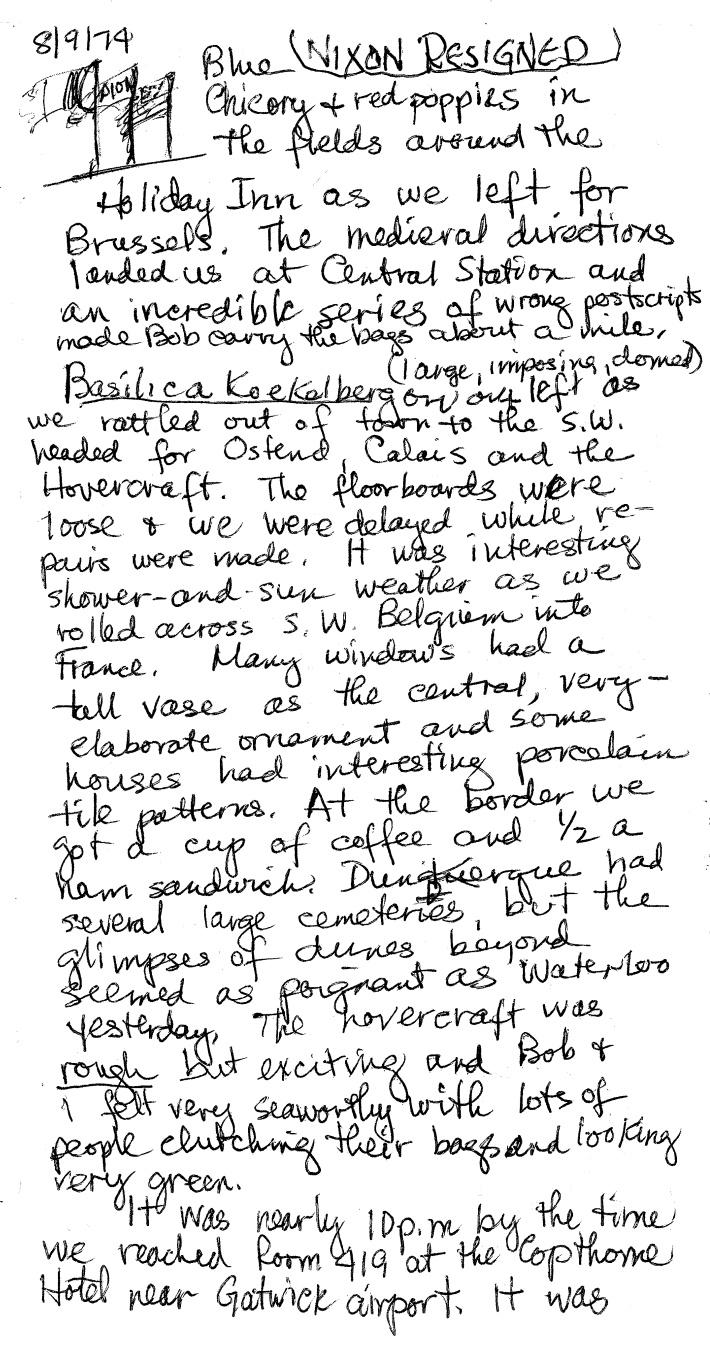 8/9/74
Blue (NIXON RESIGNED)
Chicory & red poppies in
the fields around the
Holiday Inn as we left for
Brussels. The medieval directions
landed us at Central Station and
an incredible series of wrong postscripts
made Bob carry the bags about a mile.
(large, imposing, domed)
Basilica Koekelberg on our left as
we rattled out of town to the S.W.
headed for Ostend, Calais and the
Hovercraft. The floorboards were
loose & we were delayed while re-
pairs were made. It was interesting
shower-and-sun weather as we
rolled across S.W. Belgium into
France. Many windows had a
tall vase as the central, very-
elaborate ornament and some
houses had interesting porcelain
tile patterns. At the border we
got a cup of coffee and 1/2 a
ham sandwich. Dunquerque had
several large cemeteries, but the
glimpses of dunes beyond
seemed as poignant as Waterloo
yesterday. The hovercraft was
rough but exciting and Bob &
I felt very seaworthy with lots of
people clutching their bags and looking
very green.
It was nearly 10 p.m by the time
we reached Room 419 at the Copthorne
Hotel near Gatwick airport. It was